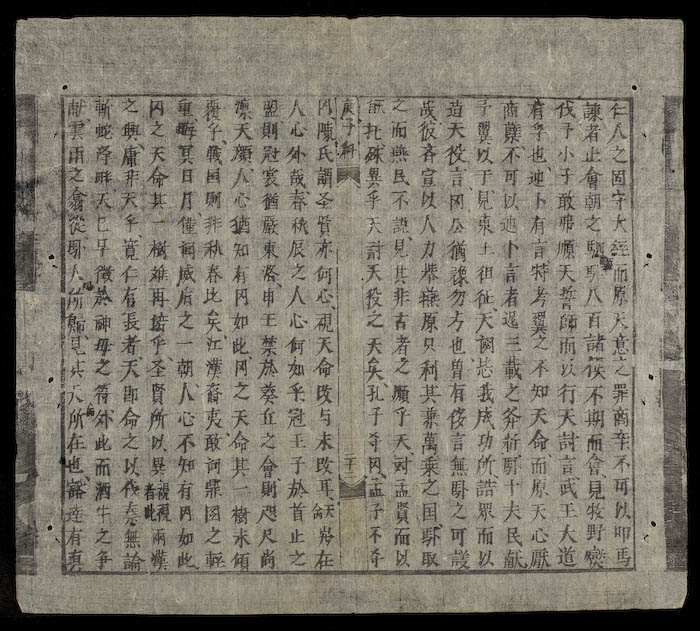 仁人之固守大經而原天意之罪商辜不可以叩馬
諫者止會朝之駟騵八百諸侯不期而會見牧野燮
伐予小子敢弗順天誓師而以行天討言武王大道
有孚也迪卜有言特考翼之不知天命而原天心厭
商蘖不可以迪卜言者遏三載之斧斨馹十夫民献
予翼以于見東土徂征天閟毖我成功所誥眾而以
造天役言冈公猶豫勿方也曾有侈言無馹之可護
哉彼吝宣以人力無原只利其兼萬乘之囯馹取
之而無民不謐見其非古者之願乎天討孟賢而以
托殊異乎天討天役之天矣孔子夺冈孟子不夺
庚子科 二十
冈陳氏謂圣贤亦何心視天命改与未改耳天命在
人心外哉春秋辰之人心何如乎冠王子於首止之
盟則冠裳猶嚴東洛申王禁於葵丘之會則咫尺尚
凛天顔人心猶知有冈如此冈之天命其一樹未傾
覆乎戰囯則非秋春比矣江漢裔夷敢诃鼎囯之輕
重晦冥日月僅詞城后之一朝人心不知有冈如此
冈之天命其一樹难再培乎圣賢所以異視者此視兩漢
之興庸非天乎寛仁有長者天即命之以伐秦無論
斬蛇呼天已早徵於神母之符外此而酒牛之争
献雲雨之翕從馹人所歸見其天所在也豁達有真